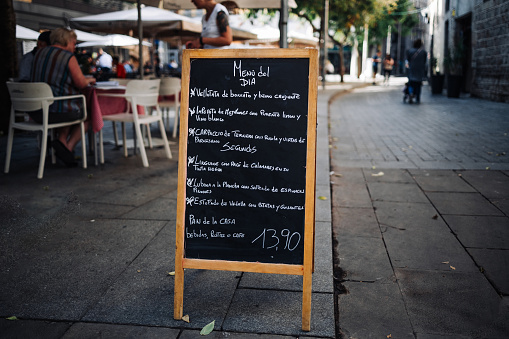 Menú del
DIA
Veloutata de boniato y bacon crujiente
de Mejillones con Pimienta limon y
Vino blanco
Carpaccio de Ternera con Rucula y virutas de
Parmesano
Segundos
Linguine con Ragú de Calamares en su
Tinta negra
Lubina a la Plancha con Salteado de
Estofado de con Patatas y Guisantes
Pan de la CASA
bebidas, Postre o cafe 13,90